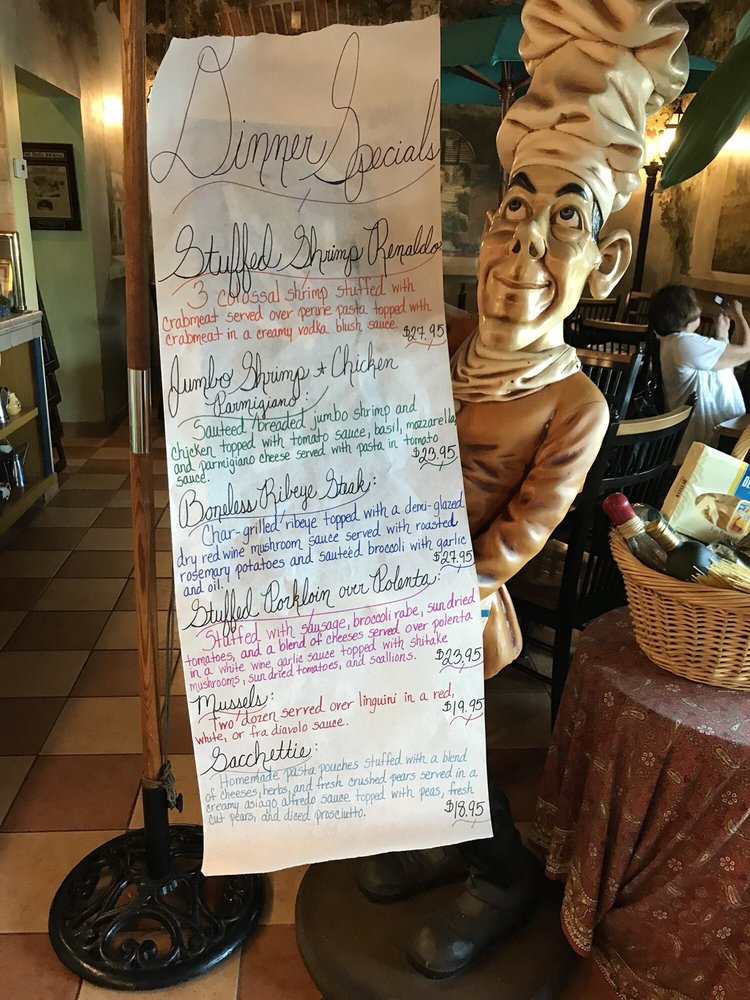 Dinner Specials
Stuffed Shrimp Renaldo
3 colossal shrimp stuffed with
crabmeat served over penne pasta topped with
crabmeat in a creamy vodka blush sauce. $27.95
Jumbo Shrimp + Chicken
Parmigiano:
Sauteed breaded jumbo shrimp and
chicken topped with tomato sauce, basil, mozzarella,
and parmigiano cheese served with pasta in tomato
sauce. $23.95
Boneless Ribeye Steak:
Char-grilled ribeye topped with a demi-glazed
dry red wine mushroom sauce served with roasted
rosemary potatoes and sauteéd broccoli with garlic
and oil. $27.95
Stuffed Porkloin over Polenta:
Stuffed with sausage, broccoli rabe, sun dried
tomatoes, and a blend of cheeses served over polenta
in a white wine garlic sauce topped with shitake
mushrooms, sun dried tomatoes, and scallions. $23.95
Mussels:
Two dozen served over linguini in a red,
white, or fra diavolo sauce. $19.95
Sacchettie:
Homemade pasta pouches stuffed with a blend
of cheeses, herbs, and fresh crushed pears served in a
creamy asiago alfredo sauce topped with peas, fresh
cut pears, and diced prosciutto. $18.95